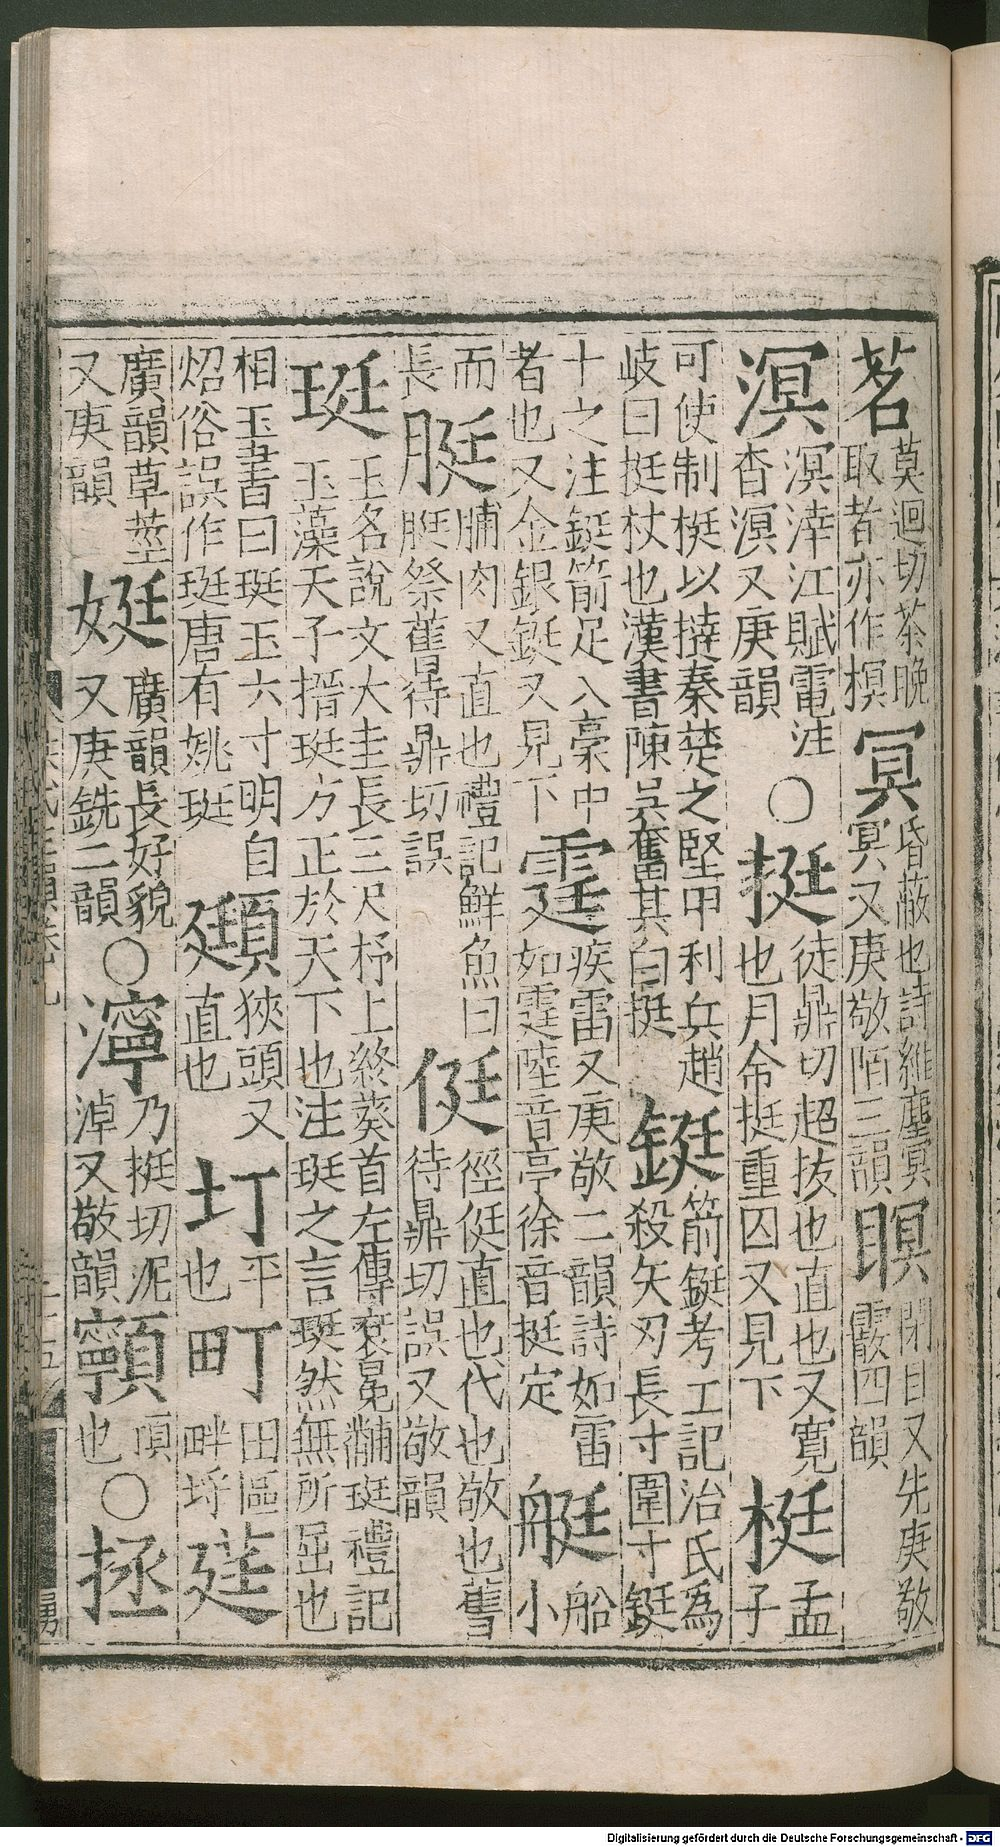 茗莫迥切茶晚取者亦作榠冥昏蔽也詩維塵冥冥又庚敬陌三韻瞑閉目又先庚敬霰四韻
溟溟涬江賦電注杳溟又庚韻○挺徒鼎切超拔也直也又寬也月令挺重囚又見下梃孟子
可使制梃以撻秦楚之堅甲利兵趙岐曰挺杖也漢書陳吳奮其白挺鋌箭鋌考工記治氏為殺矢刃長寸圍寸鋌
十之注鋌箭足入稾中者也又金銀鋌又見下霆疾雷又庚敬二韻詩如雷如霆陸音亭徐音挺定艇船小
而長脡脯肉又直也禮記鮮魚曰脡祭舊待鼎切誤侹徑侹直也代也敬也舊待鼎切誤又敬韻
珽玉名說文大圭長三尺杼上終葵首左傳袞冕黼珽禮記玉藻天子搢珽方正於天下也注珽之言珽然無所屈也
相玉書曰珽玉六寸明自炤俗誤作珽唐有姚珽頲狹頭又直也圢平也町田區畔埓莛
廣韻草莖又庚韻娗廣韻長好貌又庚銑二韻○濘乃挺切泥淖又敬韻顊頂也○拯
Digitalisierung gefördert durch die Deutsche Forschungsgemeinschaft - DFG